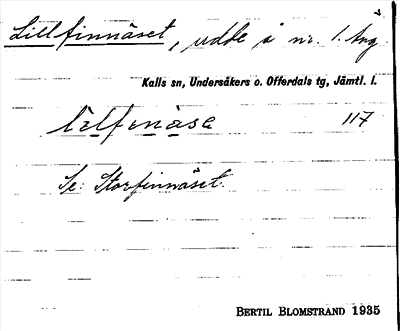 Lillfinnäset, udde å nr. 1. Ang
Kalls sn, Undersåkers o. Offerdals tg, Jämtl. l.
lìlfinàsa 117
Se: Storfinnäset.
BERTIL BLOMSTRAND 1935